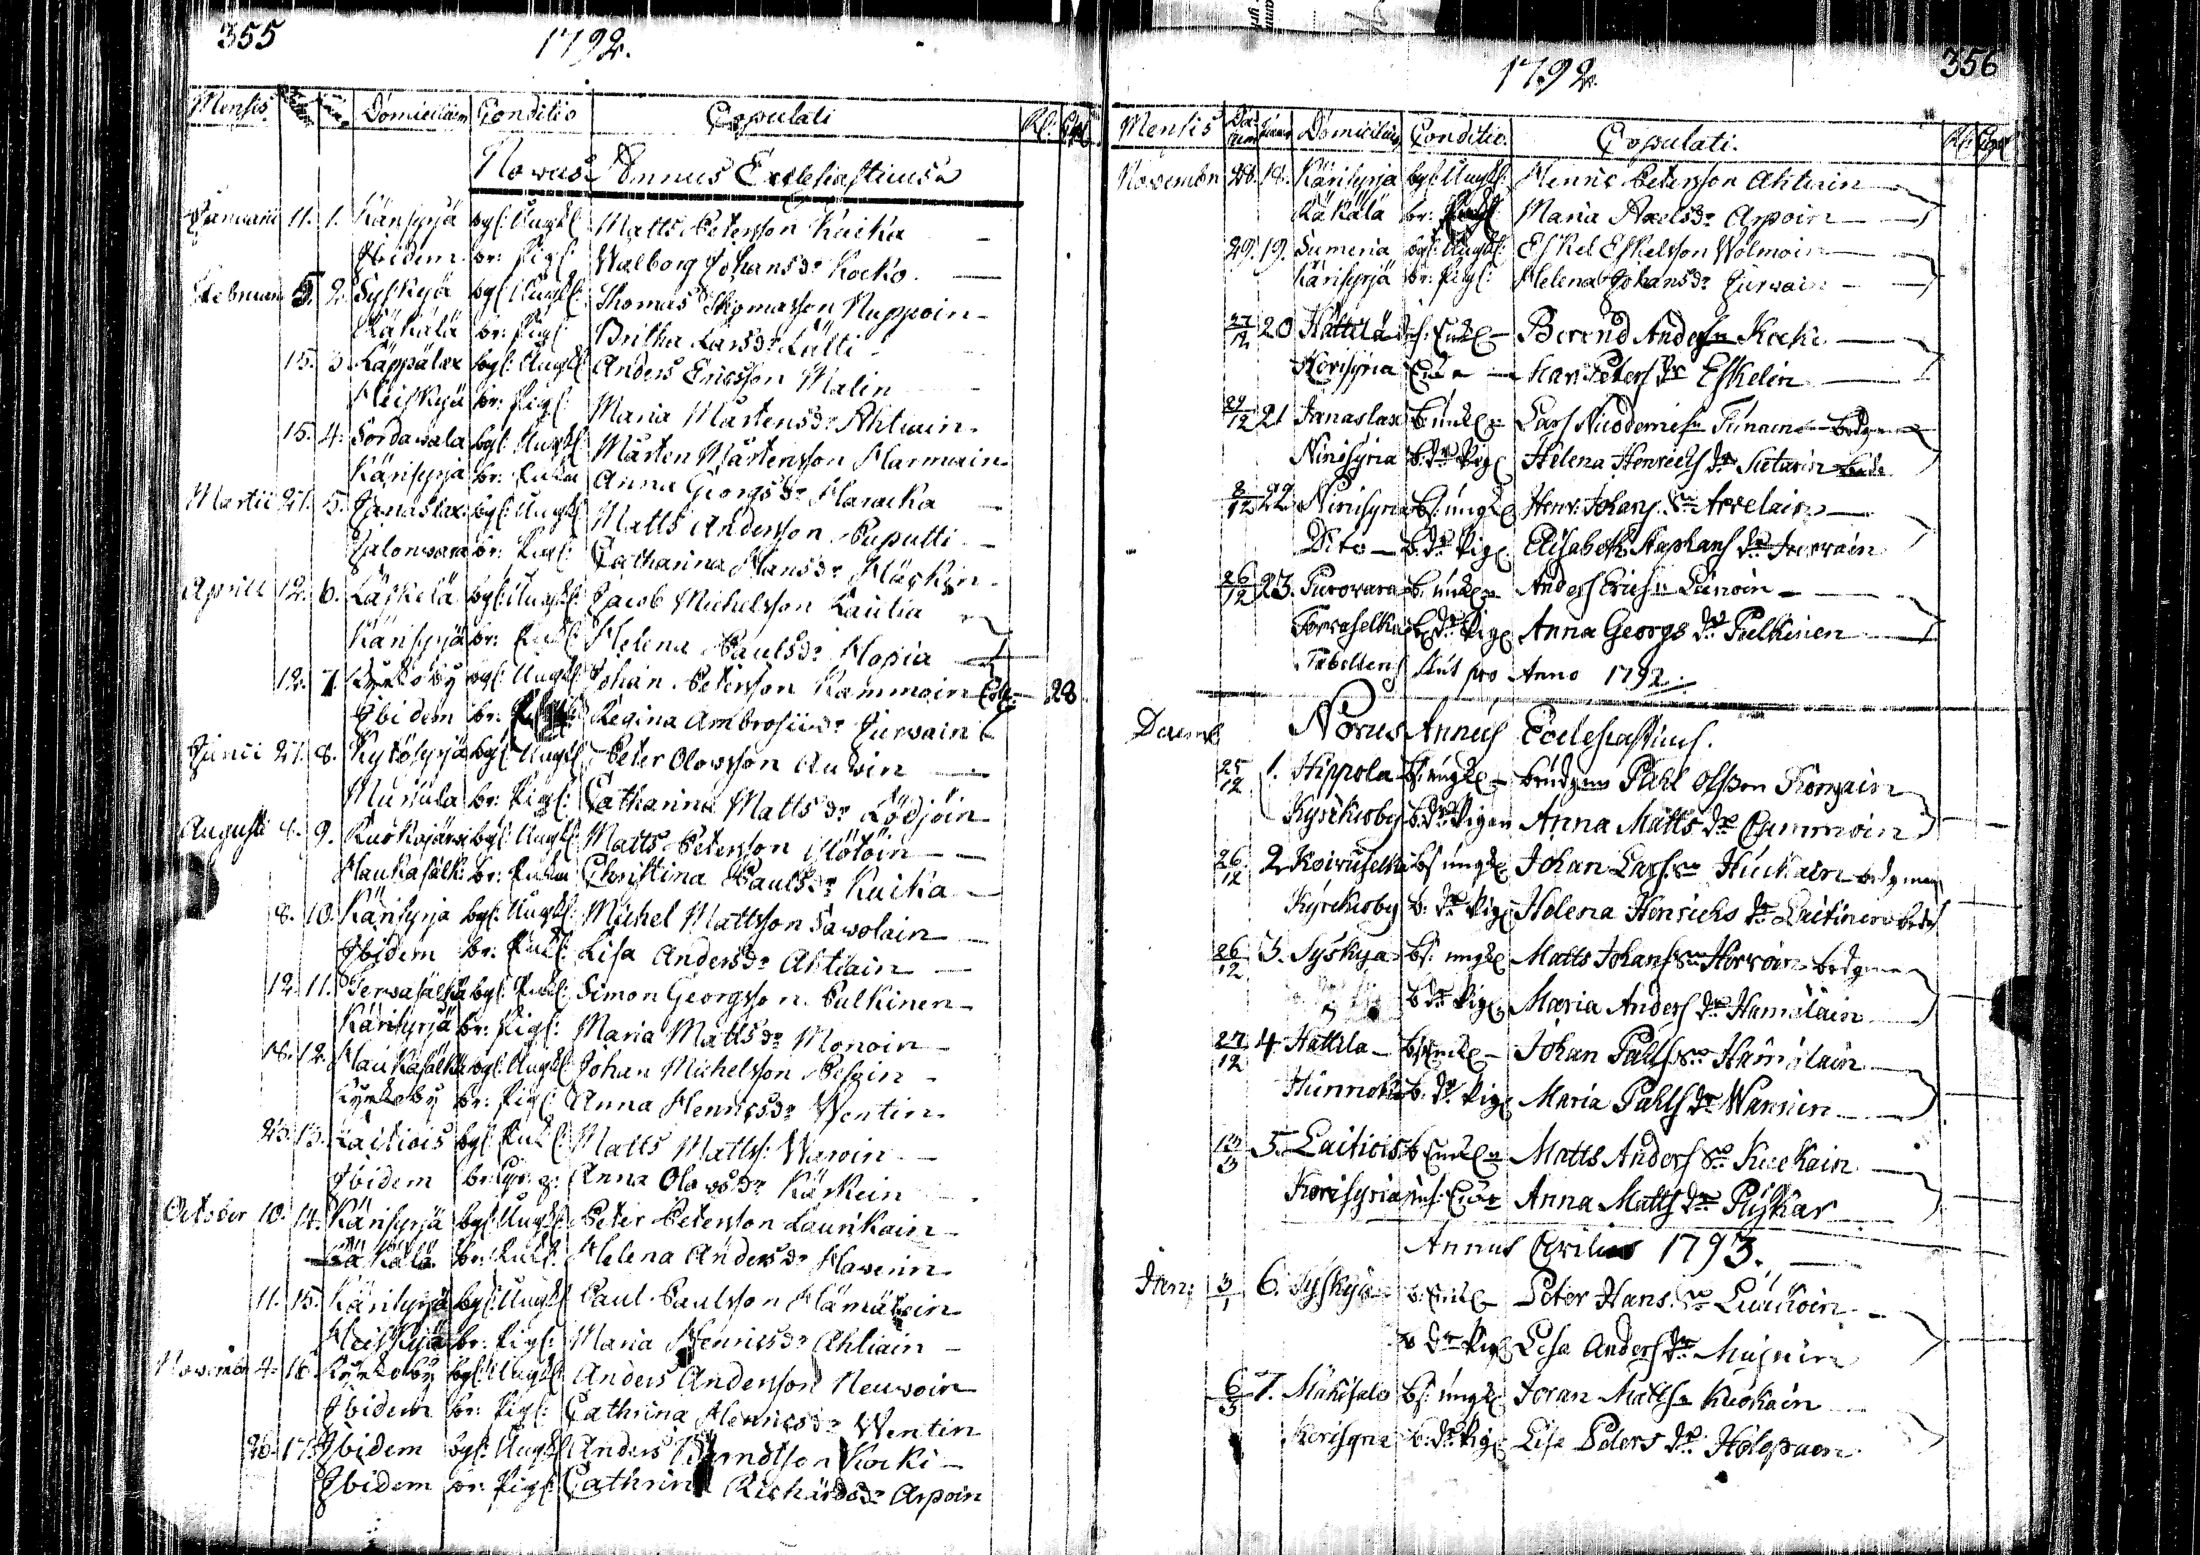 355
1792.
Mensis Domicilium Conditio Copulati Kl:
Novus Annus Ecclesiasticus
Januarii 11. 1. Kärisyrjä bgs: Ungk: Matts Petersson Kuika
Ibidem br: Pig: Walborg Johansdr Kocko.
Februarii 5. 2. Syskyä bgs: Ungk: Thomas Thomasson Nuppoin
Räkälä br: Pig: Britha Larsdr Lätti
15. 3. Läppälax bgs: Ungk: Anders Ericsson Malin
Meiskyä br: Pig: Maria Mårtensdr Ahtiain
15. 4. Sordavala bgs: Ungk: Mårten Mårtensson Harmain
Kärisyrjä br: Enka Anna Georgsdr Haracka
Martii 21. 5. Janaslax bgs: Ungk: Matts Andersson Puputti
Jalowaara br: Pig: Catharina Hansdr Härkin
Aprill 12. 6. Läskelä bgs: Ungk: Jacob Michelsson Laulia
Kärisyrjä br: Enk: Helena Paulsdr Hopia
12. 7. Kyrkoby bgs: Ungk: Johan Petersson Kammoin 28
Ibidem br: Regina Ambrosiidr Jurvain
Junii 21. 8. Kytösyrjä bgs: Ungk: Peter Olowsson Auvin
Mursula br: Pig: Catharina Mattsdr Lödjöin
Augusti 4. 9. Kuokajärvi bgs: Ungk: Matts Petersson Mötöin
Haukasälk: br: Enka Christina Paulsdr Kuika
8. 10. Kärisyrjä bgs: Ungk: Michel Mattsson Sawolain
Ibidem br: Enk: Lisa Andersdr Ahtiain
12. 11. Jerwasälkä bgs: Enk: Simon Georgsson Pulkinen
Kärisyrjä br: Pig: Maria Mattsdr Monoin
18. 12. Haukasälkä bgs: Ungk: Johan Michelsson Pesoin
Kyrkoby br: Pig: Anna Henricsdr Wentin
23. 13. Laitiois bgs: Enk: Matts Matts: Waroin
Ibidem br: Anna Olowsdr Kärkein
October 10. 14. Kärisyrjä bgs: Ungk: Peter Petersson Laurikain
Räkälä br: Enk: Helena Andersdr Havenin
11. 15. Kärisyrjä bgs: Ungk: Paul Paulsson Hämäläin
Meiskyä br: Pig: Maria Henricsdr Ahtiain
November 4. 16. Kyrkoby bgs: Ungk: Anders Andersson Neuvoin
Ibidem br: Pig: Cathrina Henricsdr Wentin
26. 17. Ibidem bgs: Ungk: Anders Berndtsson Kocki
Ibidem br: Pig: Cathrina Richardsdr Arpoin
1792.
356
Mensis Domicilium Conditio. Copulati. Kl:
November 26. 18. Kärisyrjä bgs: Ungk: Henric Petersson Ahtiain
Räkälä br: Maria Axelsdr Arpoin
29. 19. Sumeria bgs: Ungk: Eskel Eskelsson Wolmoin
Kärisyrjä br: Pig: Helena Johansdr Jurvain
27/12 20 Hättilä Enkl Berend Andersn Kocki
Kerisyria Enka Kari Peters dr Eskelin
29/12 21 Janaslax b: Lars Nicodemisn Tünoin
Ninisyria b: dr Pig: Helena Henrichs dr Sutarin
8/12 22 Ninisyria bs: ungk: Henr: Johans sn Arrelain
Dito b: dr Pig: Elisabeth Staphans dr Jurvain
26/12 23. Purovara b: Anders Erichsn Leinoin
Jervaselkä b: dr Pig: Anna Georgs dr Pulkinen
Tabellens slut pro Anno 1792.
Decemb Novus Annus Ecclesiasticus.
25/12 1. Hippola bs: ungk: brudgum Påhl Olsson Kormain
Kyrckioby b: dr Pigan Anna Matts dr Cammoin
26/12 2 Koiruselka bs: ungk: Johan Lars sn Huckain brdgum
Kyrckioby b: dr Pig: Helena Henrichs dr Laitinen
26/12 3. Syskyä bs: ungk: Matts Johans sn Horvoin brdgum
b: dr Pig: Maria Anders dr Hamälain
27/12 4 Hättila Johan Påhls sn Hämälain
b: dr Pig: Maria Påhls dr Wannin
5. Laitiois Matts Anders sn Kuckain
Kerisyria Anna Matts dr Pliskar
Annus Civilus 1793.
Jan: 3/1 6. Syskyä Peter Hans. sn Liukoin
b dr Pig: Lisa Anders dr Musuin
7. Mäkisalo bs: ungk: Joran Matts sn Kuokain
Kerisyria b: dr Pig: Lisa Peters dr Holopain